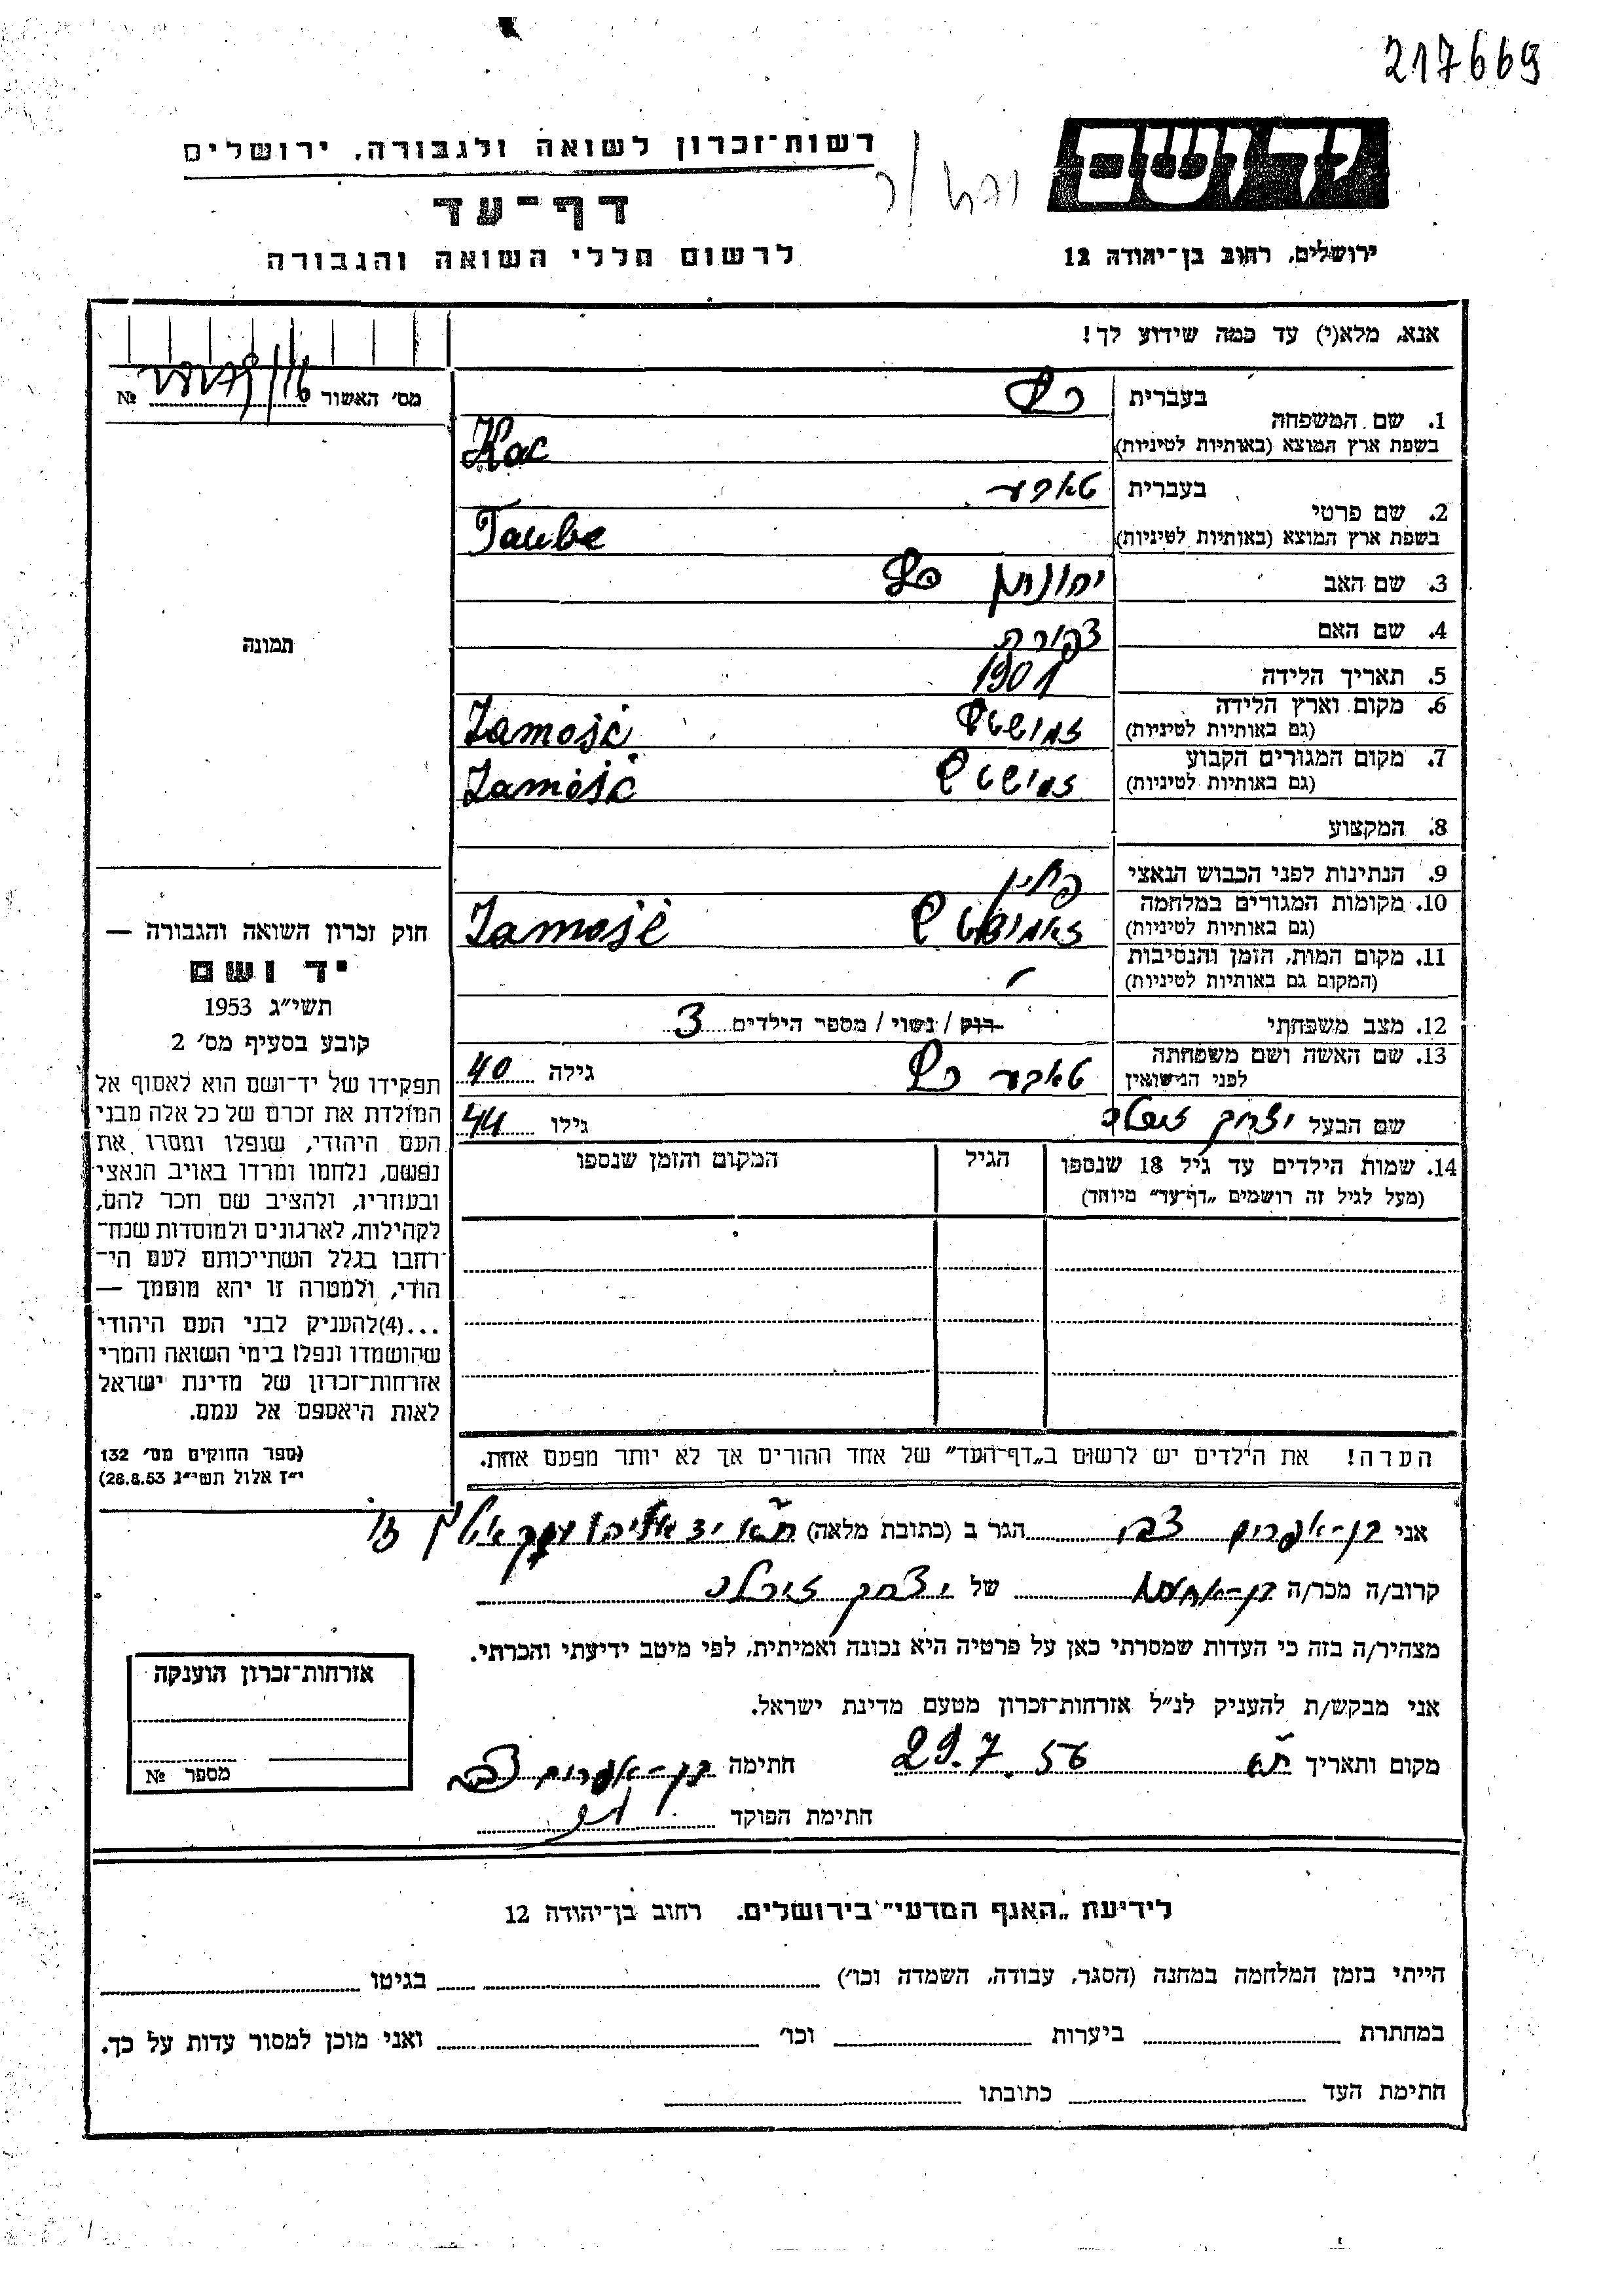 217669
יד ושם
רשות־זכרון לשואה ולגבורה, ירושלים
דף־עד
לרשום חללי השואה והגבורה
ירושלים, רחוב בן־יהודה 12
אנא, מלא(י) עד כמה שידוע לך!
מס׳ האשור № 
1. שם המשפחה
בעברית כץ
בשפת ארץ המוצא (באותיות לטיניות) Kac
2. שם פרטי
בעברית טאבע
בשפת ארץ המוצא (באותיות לטיניות) Taube
3. שם האב יהונתן כץ
4. שם האם צפורה
5. תאריך הלידה 1901
6. מקום וארץ הלידה זמושטש Zamość
(גם באותיות לטיניות)
7. מקום המגורים הקבוע זמושטש Zamość
(גם באותיות לטיניות)
8. המקצוע
9. הנתינות לפני הכבוש הנאצי פולין
10. מקומות המגורים במלחמה זאמושטש Zamość
(גם באותיות לטיניות)
11. מקום המות, הזמן והנסיבות
(המקום גם באותיות לטיניות)
12. מצב משפחתי רוק / נשוי / מספר הילדים 3
13. שם האשה ושם משפחתה לפני הנישואין טאבע כץ גילה 40
שם הבעל יצחק גילו 44
14. שמות הילדים עד גיל 18 שנספו הגיל המקום והזמן שנספו
(מעל לגיל זה רושמים „דף־עד״ מיוחד)
הערה! את הילדים יש לרשום ב„דף־העד״ של אחד ההורים אך לא יותר מפעם אחת.
תמונה
חוק זכרון השואה והגבורה —
יד ושם
תשי״ג 1953
קובע בסעיף מס׳ 2
תפקידו של יד־ושם הוא לאסוף אל
המולדת את זכרם של כל אלה מבני
העם היהודי, שנפלו ומסרו את
נפשם, נלחמו ומרדו באויב הנאצי
ובעוזריו, ולהציב שם וזכר להם,
לקהילות, לארגונים ולמוסדות שנח־
רחבו בגלל השתייכותם לעם הי־
הודי, ולמטרה זו יהא מוסמך —
...(4)להעניק לבני העם היהודי
שהושמדו ונפלו בימי השואה והמרי
אזרחות־זכרון של מדינת ישראל
לאות היאספם אל עמם.
(ספר החוקים מס׳ 132
י״ז אלול תשי״ג 28.8.53)
אני בן-אפרים צבי הגר ב (כתובת מלאה) ת״א יד אליהו
קרוב/ה מכר/ה בן-אחות של יצחק
מצהיר/ה בזה כי העדות שמסרתי כאן על פרטיה היא נכונה ואמיתית, לפי מיטב ידיעתי והכרתי.
אני מבקש/ת להעניק לנ״ל אזרחות־זכרון מטעם מדינת ישראל.
מקום ותאריך ת״א 29.7.56 חתימה בן-אפרים צבי
חתימת הפוקד
אזרחות־זכרון הוענקה
מספר №
לידיעת „האגף המדעי״ בירושלים. רחוב בן־יהודה 12
הייתי בזמן המלחמה במחנה (הסגר, עבודה, השמדה וכו׳) בגיטו
במחתרת ביערות וכו׳ ואני מוכן למסור עדות על כך.
חתימת העד כתובתו